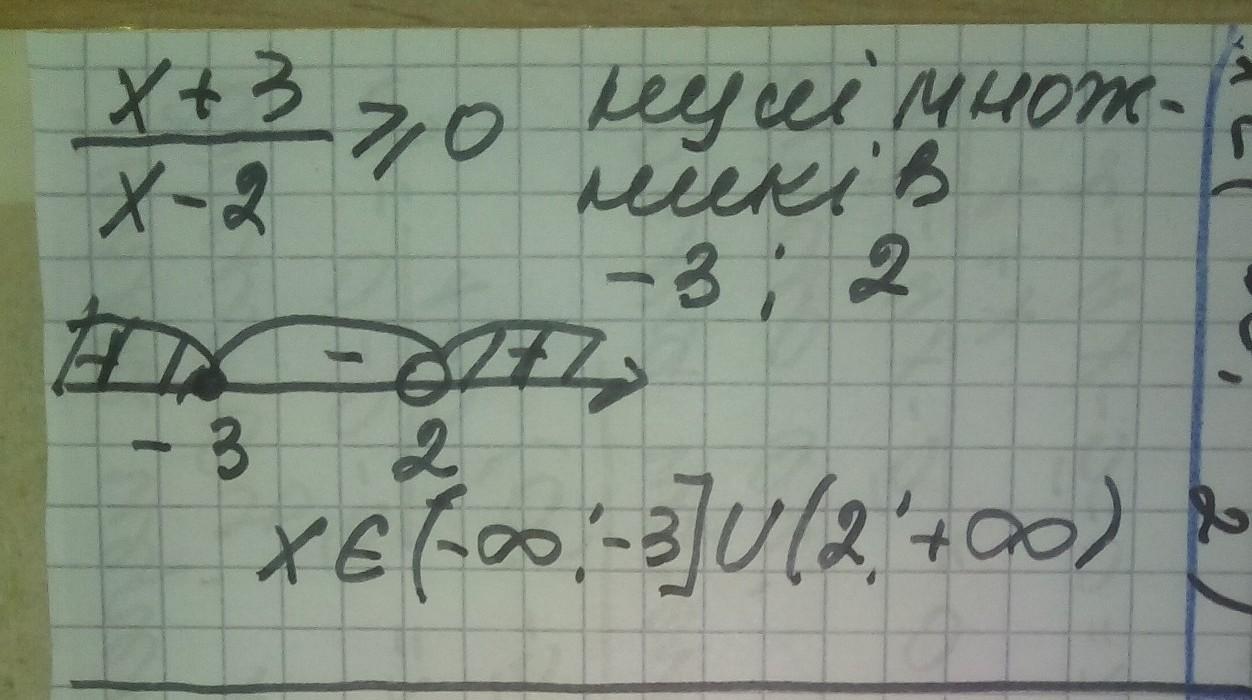 x + 3
x - 2
⩾ 0
нулі множ-
ників
-3 ; 2
+ - +
-3 2
x ∈ (-∞; -3] ∪ (2; +∞)
2)